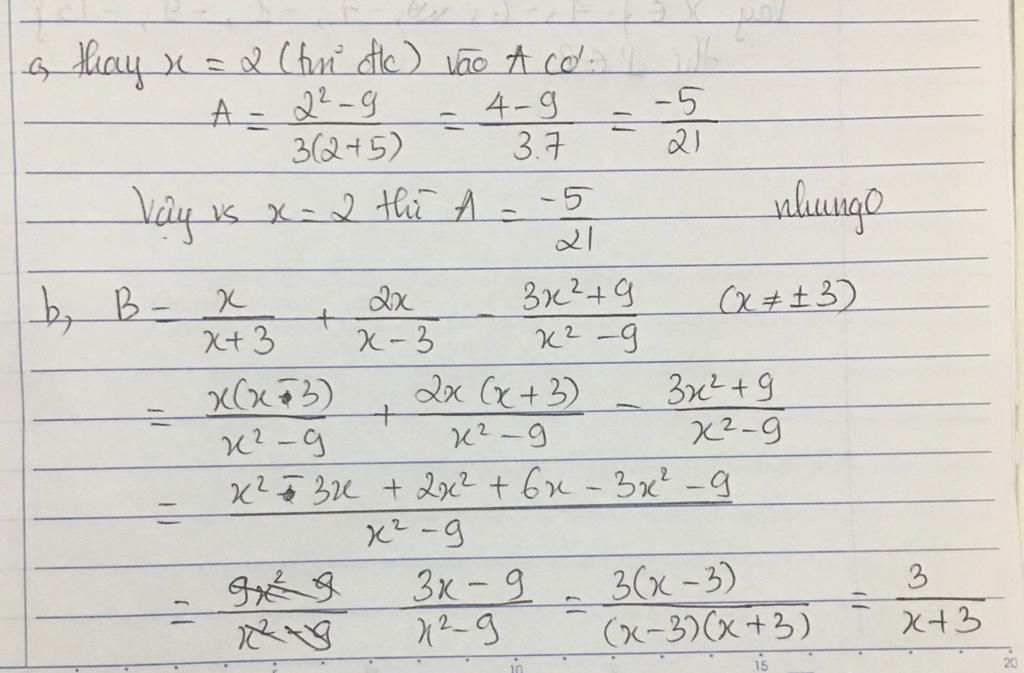 a, thay x = 2 (tm đk) vào A có:
A = (2² - 9)/(3(2+5)) = (4 - 9)/(3.7) = -5/21
Vậy vs x = 2 thì A = -5/21 nhungo
b, B = x/(x+3) + 2x/(x-3) - (3x²+9)/(x²-9) (x ≠ ±3)
= x(x-3)/(x²-9) + 2x(x+3)/(x²-9) - (3x²+9)/(x²-9)
= (x² - 3x + 2x² + 6x - 3x² - 9)/(x²-9)
= (3x - 9)/(x²-9) = 3(x-3)/((x-3)(x+3)) = 3/(x+3)
10 15 20